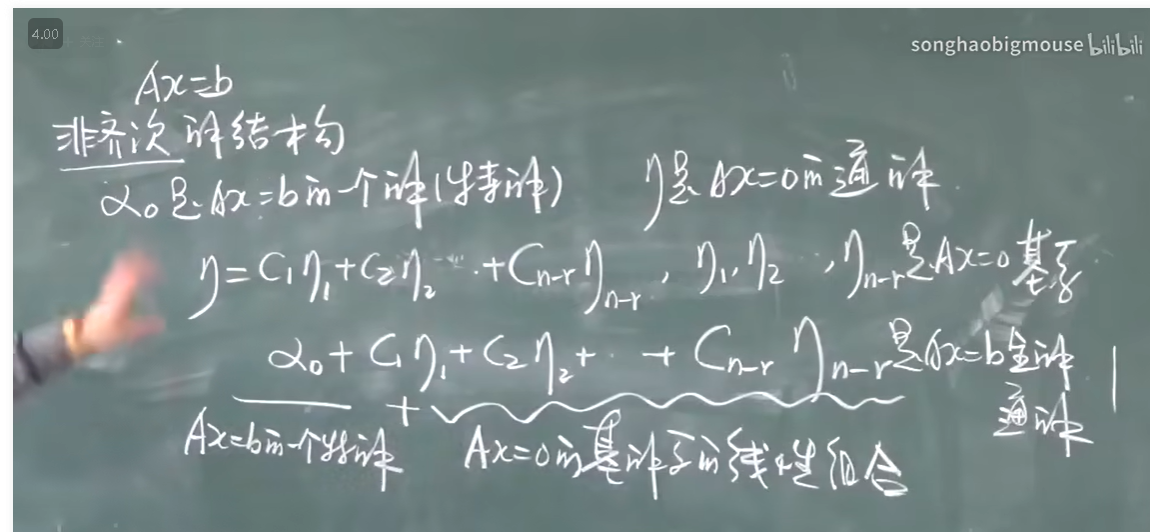 4.00
songhaobigmouse bilibili
Ax=b
非齐次解结构
α₀是Ax=b的一个解(特解) η是Ax=0的通解
η=C₁η₁+C₂η₂…+Cₙ₋ᵣηₙ₋ᵣ, η₁,η₂…,ηₙ₋ᵣ是Ax=0基系
α₀+C₁η₁+C₂η₂+…+Cₙ₋ᵣηₙ₋ᵣ是Ax=b全部解
通解
+
Ax=b的一个特解 Ax=0的基解系的线性组合